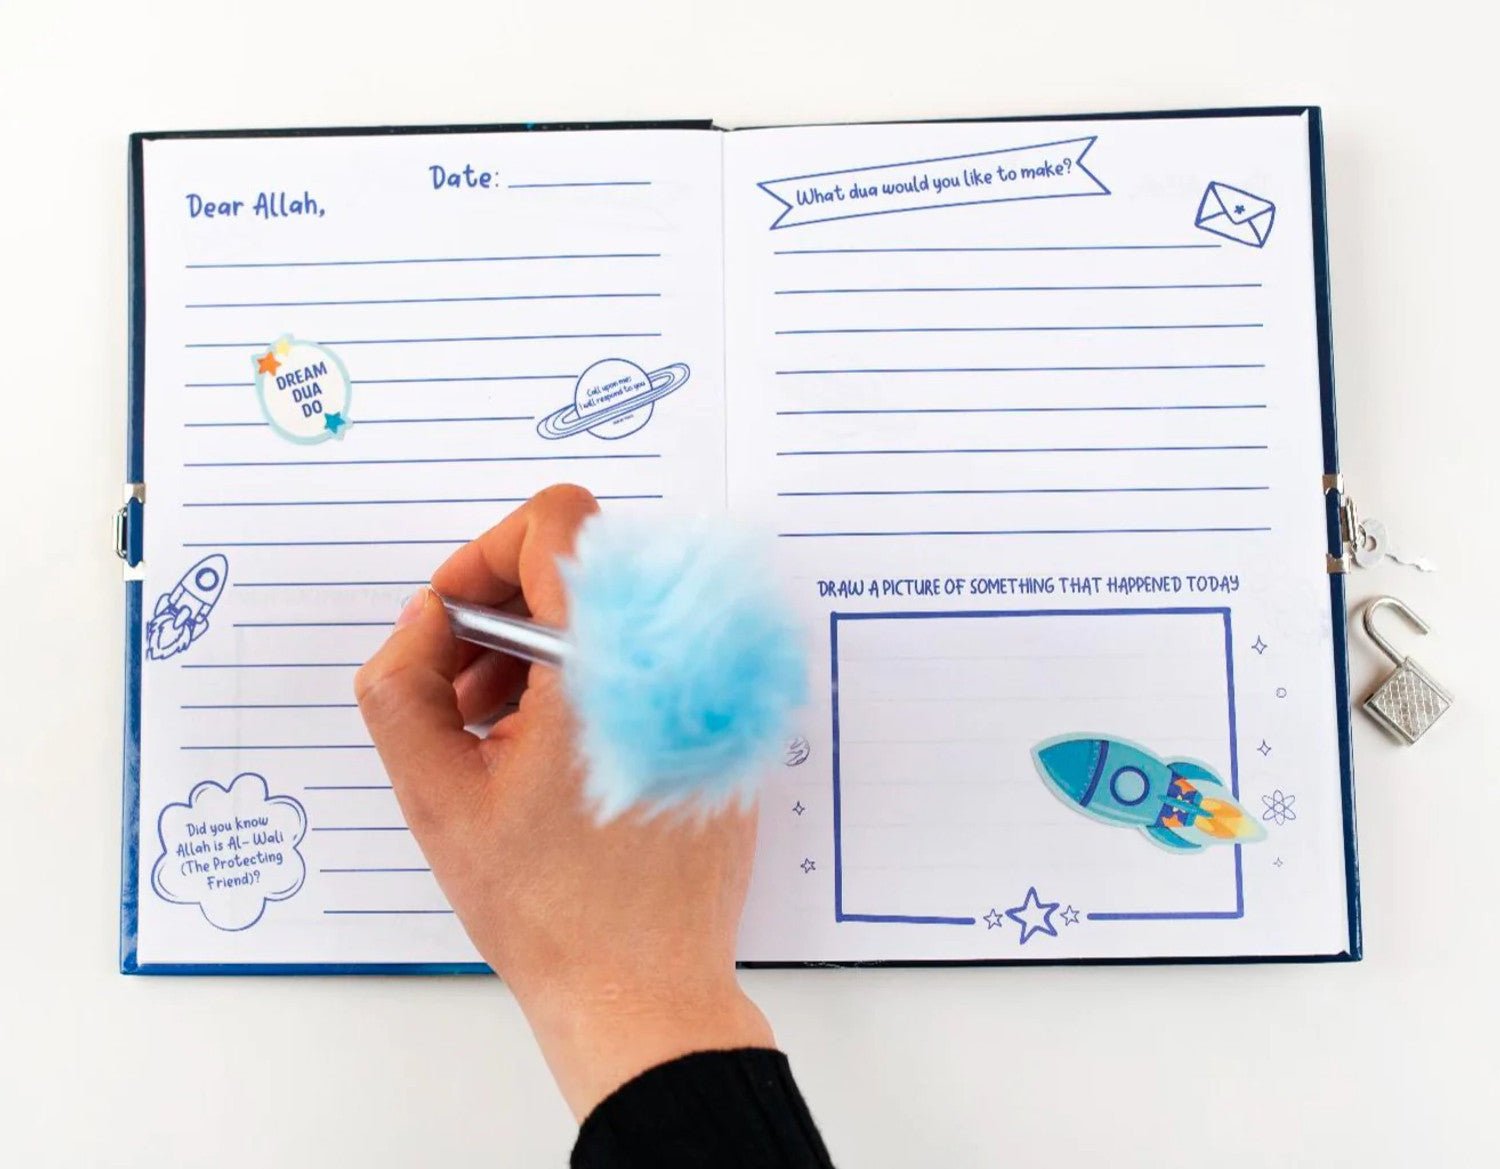 Date:
Dear Allah,
DREAM
DUA
DO
Call upon me;
I will respond to you
Did you know
Allah is Al-Wali
(The Protecting
Friend)?
What dua would you like to make?
DRAW A PICTURE OF SOMETHING THAT HAPPENED TODAY